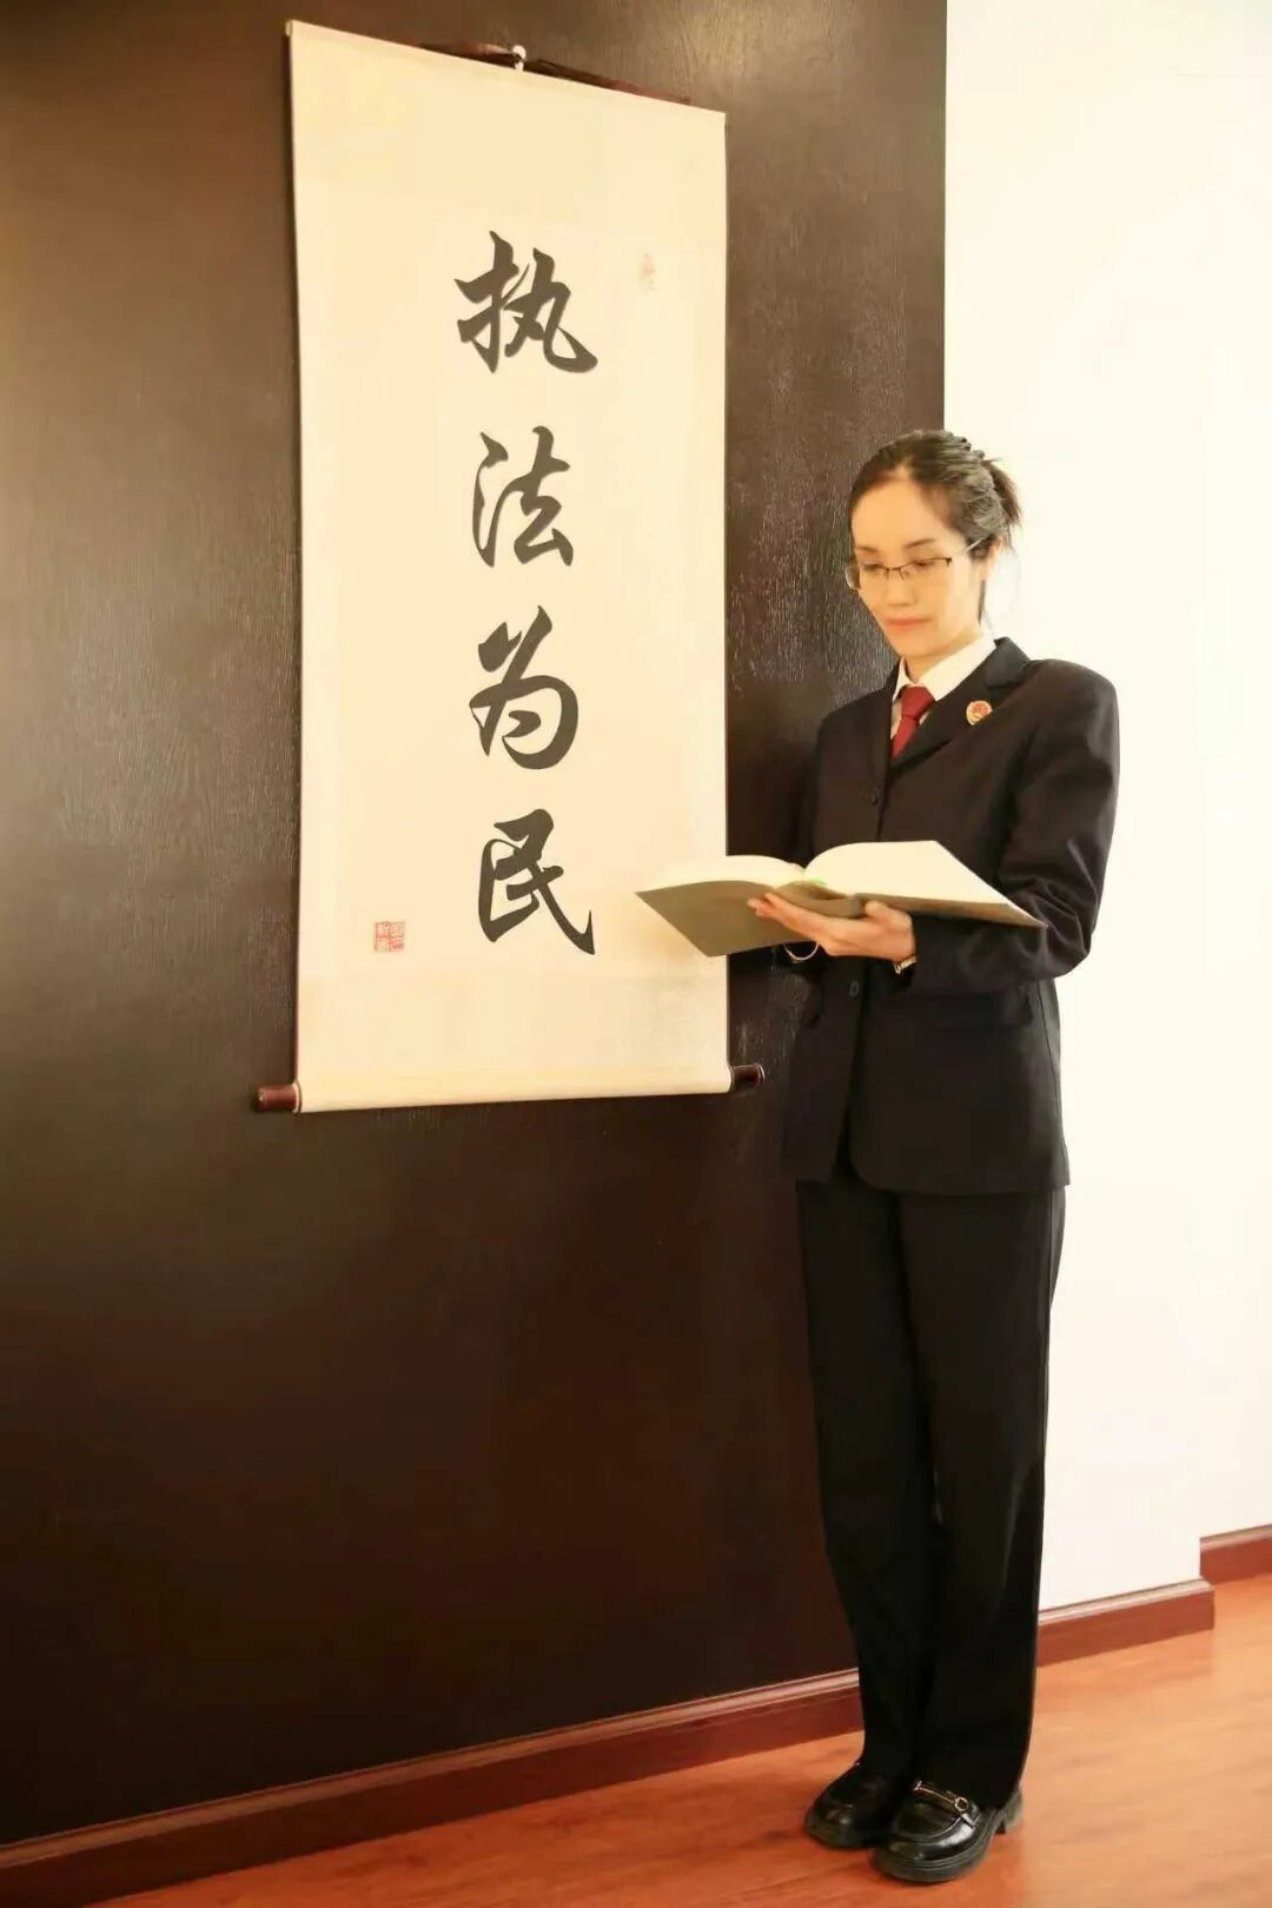 执法为民